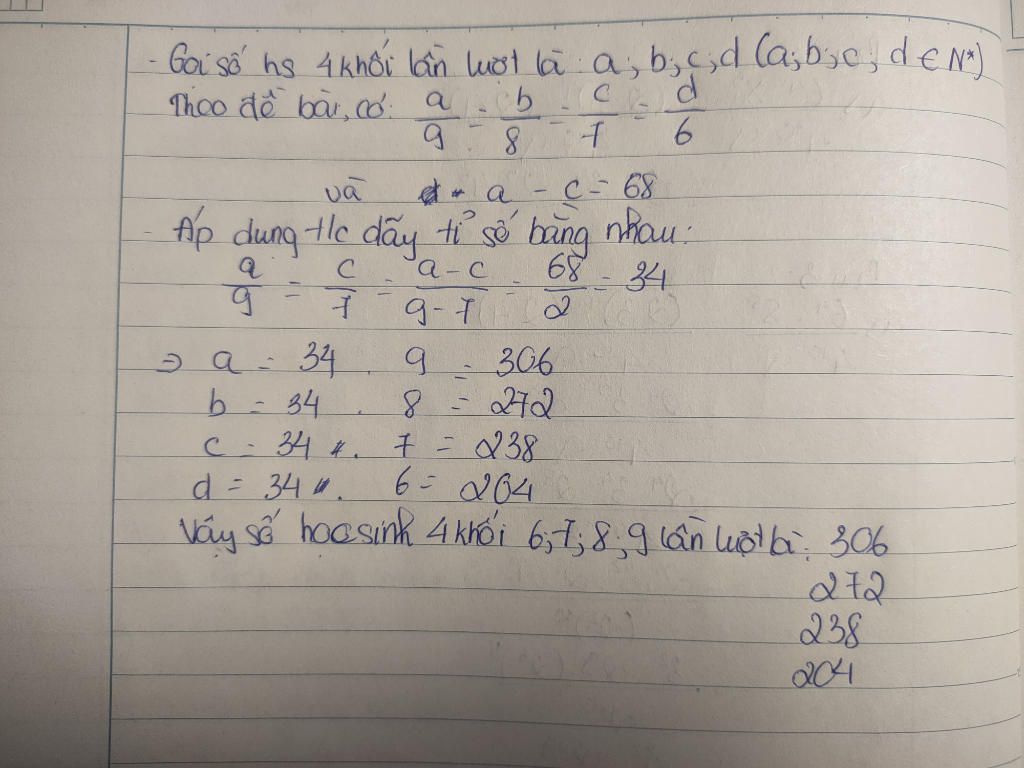 - Gọi số hs 4 khối lần lượt là: a; b; c; d (a; b; c; d ∈ N*)
Theo đề bài, có: a/9 = b/8 = c/7 = d/6
và a - c = 68
- Áp dụng t/c dãy tỉ số bằng nhau:
a/9 = c/7 = a-c/9-7 = 68/2 = 34
=> a = 34 . 9 = 306
b = 34 . 8 = 272
c = 34 . 7 = 238
d = 34 . 6 = 204
Vậy số học sinh 4 khối 6; 7; 8; 9 lần lượt là: 306
272
238
204